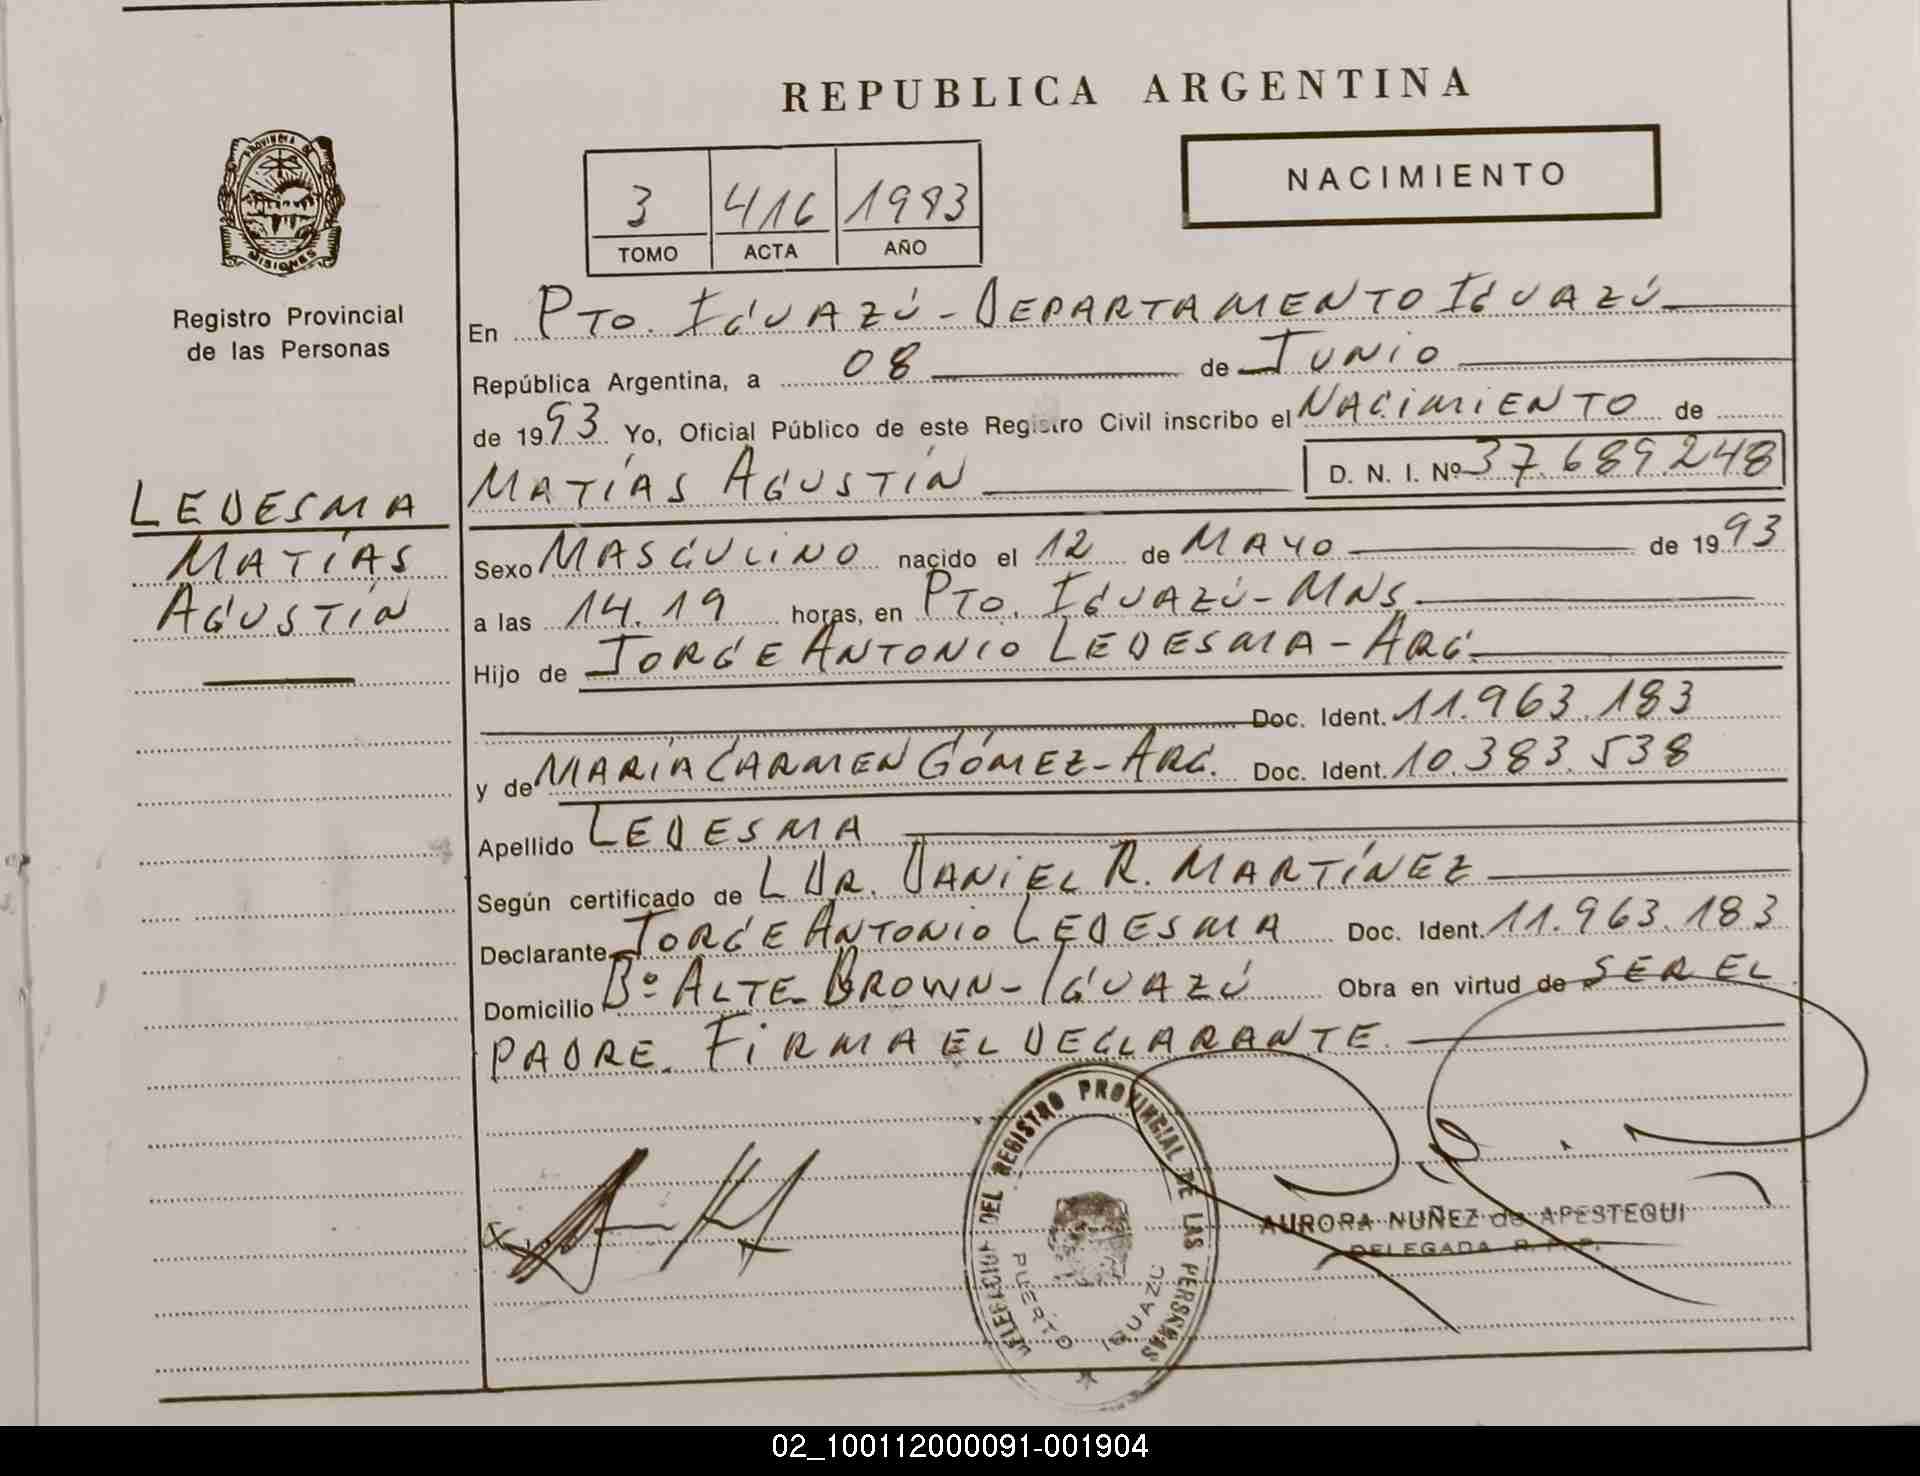 REPUBLICA ARGENTINA
PROVINCIA DE
MISIONES
Registro Provincial
de las Personas
3 416 1993
TOMO ACTA AÑO
NACIMIENTO
En PTO. IGUAZÚ - DEPARTAMENTO IGUAZÚ
República Argentina, a 08 de JUNIO
de 1993 Yo, Oficial Público de este Registro Civil inscribo el NACIMIENTO de
MATÍAS AGUSTÍN D. N. I. Nº 37.689.248
LEDESMA
MATÍAS
AGUSTÍN
Sexo MASCULINO nacido el 12 de MAYO de 1993
a las 14.19 horas, en PTO. IGUAZÚ - MNS.
Hijo de JORGE ANTONIO LEDESMA - ARG.
Doc. Ident. 11.963.183
y de MARÍA CARMEN GÓMEZ - ARG. Doc. Ident. 10.383.538
Apellido LEDESMA
Según certificado de L DR. DANIEL R. MARTÍNEZ
Declarante JORGE ANTONIO LEDESMA Doc. Ident. 11.963.183
Domicilio Bº ALTE. BROWN - IGUAZÚ Obra en virtud de SER EL
PADRE. FIRMA EL DECLARANTE.
DELEGACION DEL REGISTRO PROVINCIAL DE LAS PERSONAS
PUERTO IGUAZU
AURORA NUÑEZ de APESTEGUI
DELEGADA R. P. P.
02_100112000091-001904